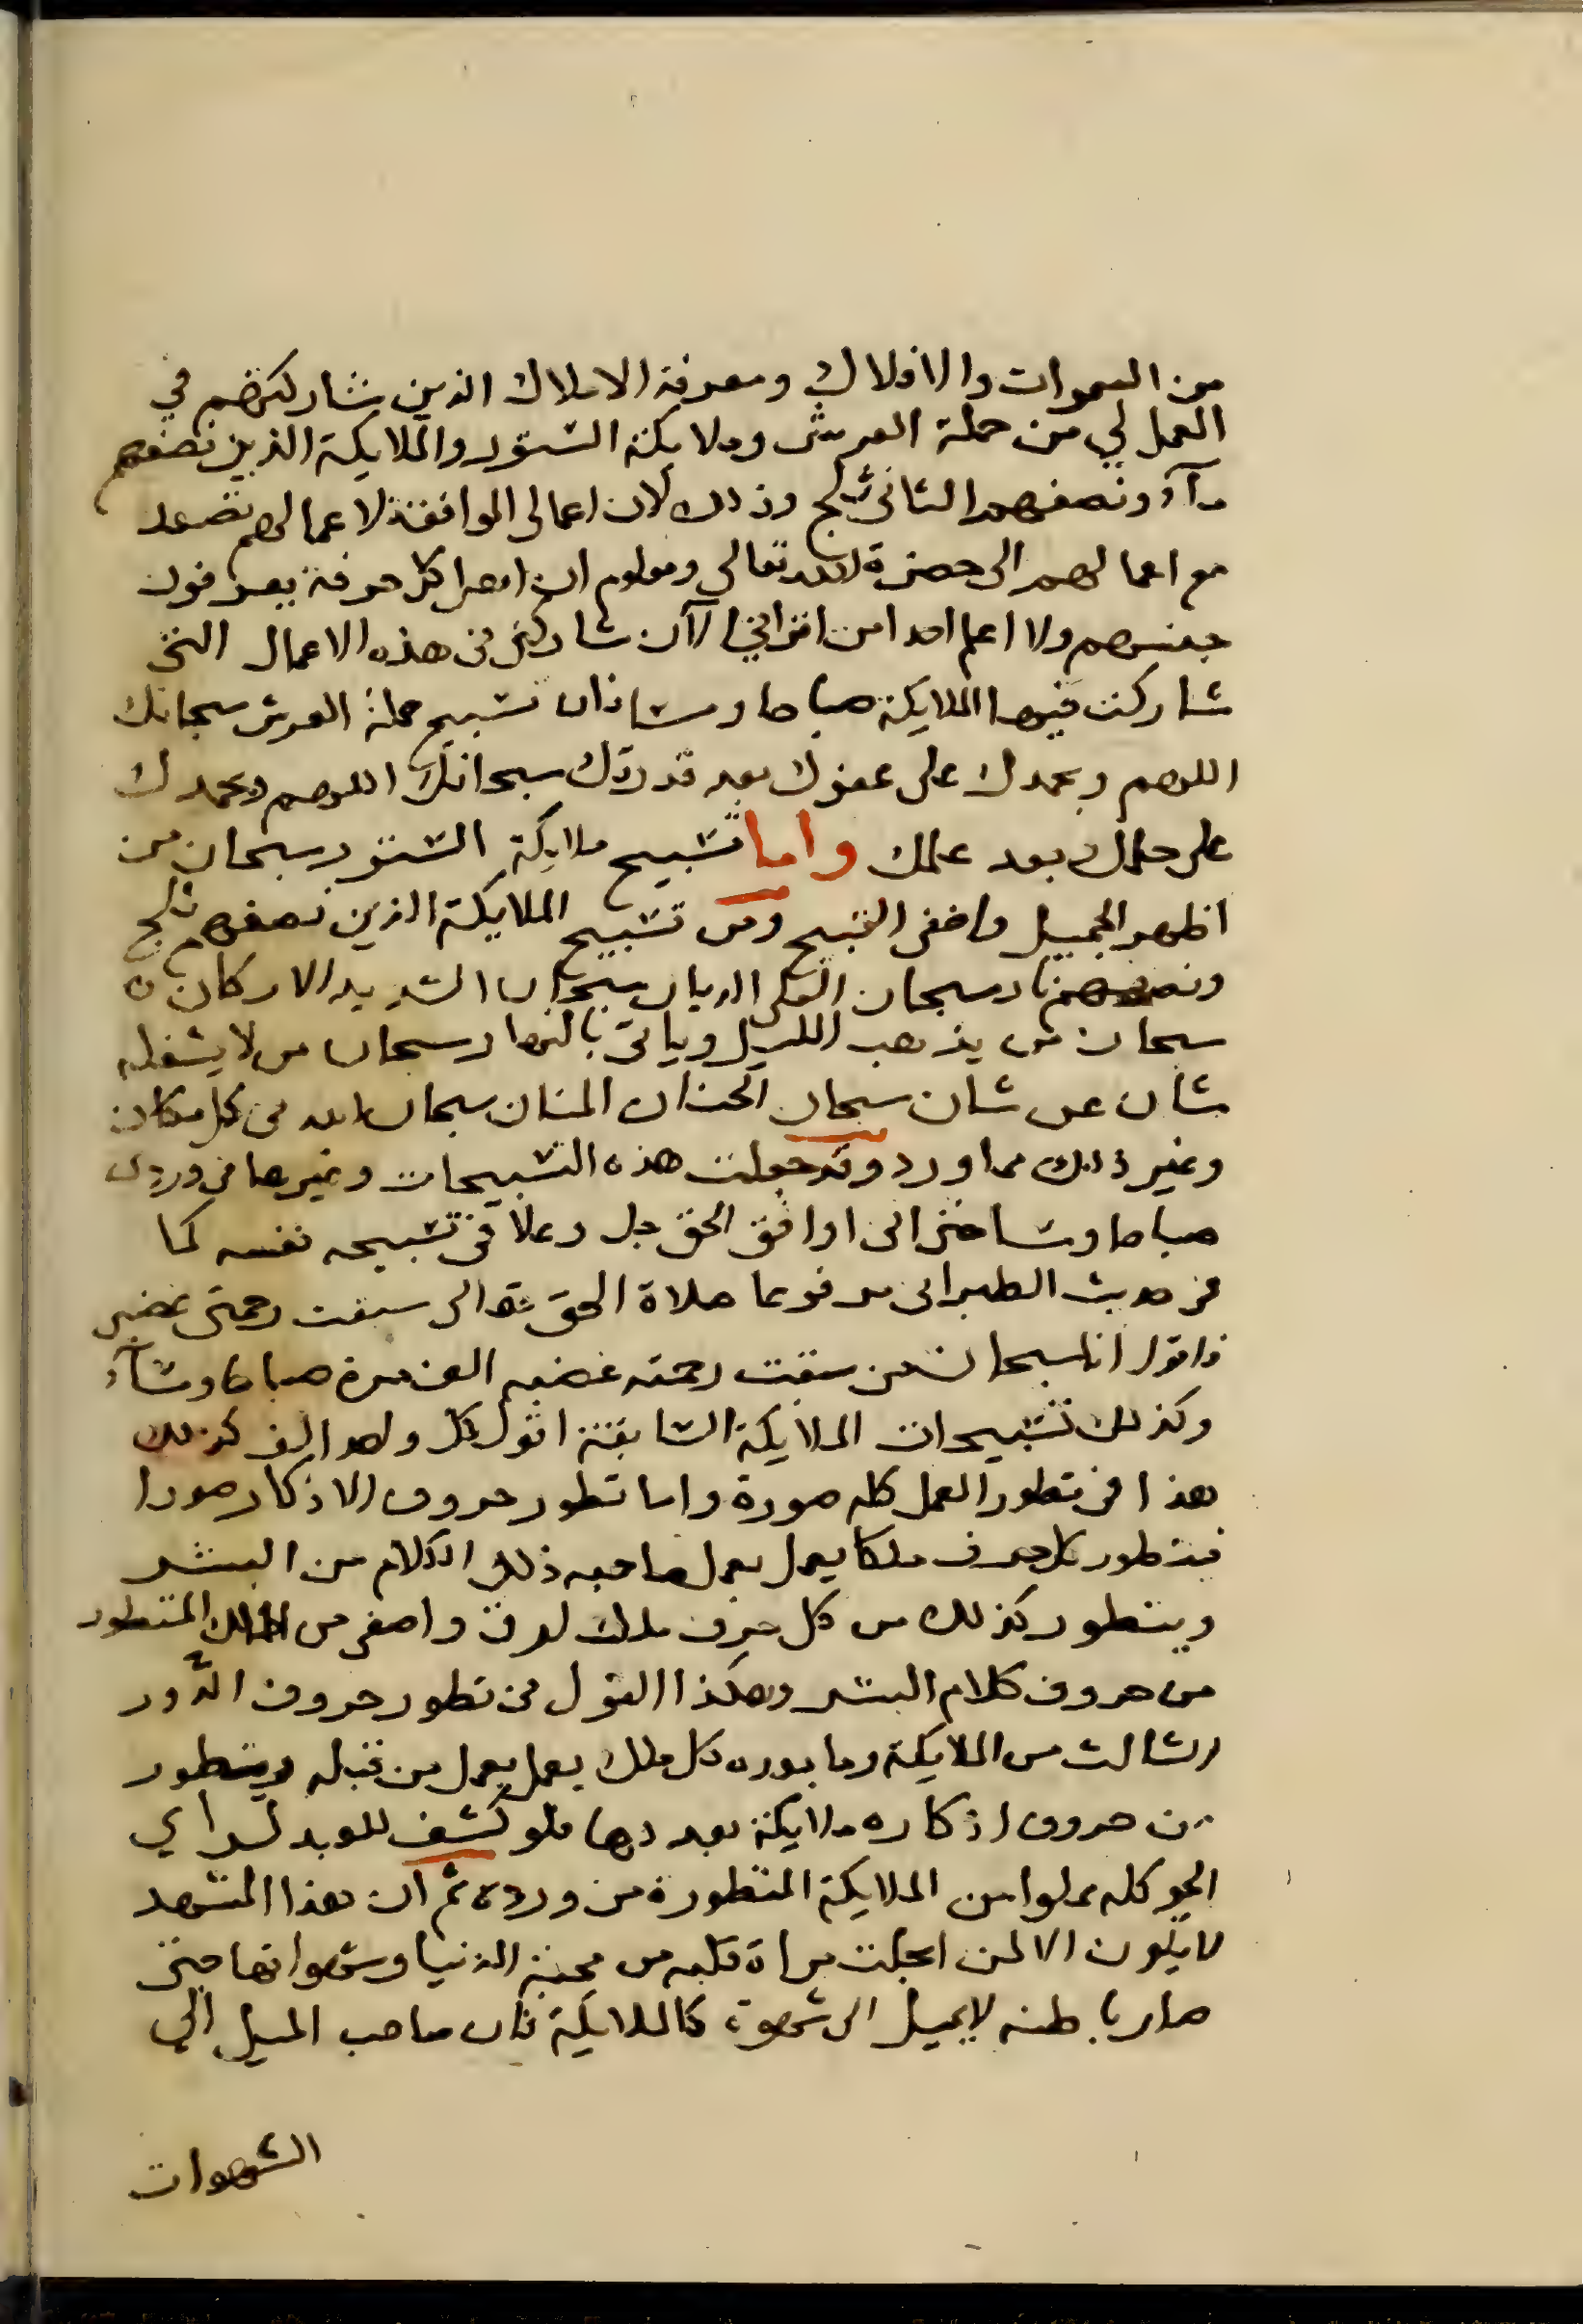 من السموات والافلاك ومعرفة الاملاك الذين شاركتهم في
العمل لي من حملة العرش وملايكة الستور والملايكة الذين نصفهم
مآء ونصفهم الثاني ثلج وذلك لان اعمالى الموافقة لاعمالهم تصعد
مع اعمالهم الى حضرة الله تعالى ومعلوم ان اهل كل حرفة يعرفون
بعضهم ولا اعلم احدا من اقراني الآن شاركني في هذه الاعمال التي
شاركت فيها الملايكة صباحا ومسا فان تسبيح حملة العرش سبحانك
اللهم وبحمدك على عفوك بعد قدرتك سبحانك اللهم وبحمدك
على حلمك بعد علمك واما تسبيح ملايكة الستور سبحان من
اظهر الجميل واخفى القبيح ومن تسبيح الملايكة الذين نصفهم ثلج
ونصفهم نار سبحان العلي الديان سبحان الشديد الاركان ه
سبحان من يذهب الليل وياتي بالنهار سبحان من لا يشغله
شان عن شان سبحان الحنان المنان سبحان الله في كل مكان
وغير ذلك مما ورد وقد جعلت هذه التسبيحات وغيرها في وردى
صباحا ومسا حتى انى اوافق الحق جل وعلا في تسبيحه نفسه كما
في حديث الطبرانى مرفوعا صلاة الحق تعالى سبقت رحمتى غضبى
فاقول انا سبحان من سبقت رحمته غضبه الف مرة صباحا ومسآء
وكذلك تسبيحات الملايكة السابقة اقول كل واحد الف كذلك
هذا في تطور العمل كله صورة واما تطور حروف الاذكار صورا
فيتطور كل حرف ملكا يعمل بعمل صاحبه ذلك الكلام من البشر
ويتطور كذلك من كل حرف ملك ادق واصغر من الملك المتطور
من حروف كلام البشر وهكذا القول في تطور حروف الدور
الثالث من الملايكة وما بعده كل ملك يعمل بعمل من قبله ويتطور
من حروف اذكاره ملايكة بعددها فلو كشف للعبد لراي
الجو كله مملوا من الملايكة المتطورة من ورده ثم ان هذا المشهد
لا يكون الا لمن انجلت مراة قلبه من محبة الدنيا وشهواتها حتى
صار باطنه لا يميل الى شهوة كالملايكة فان صاحب الميل الي
الشهوات